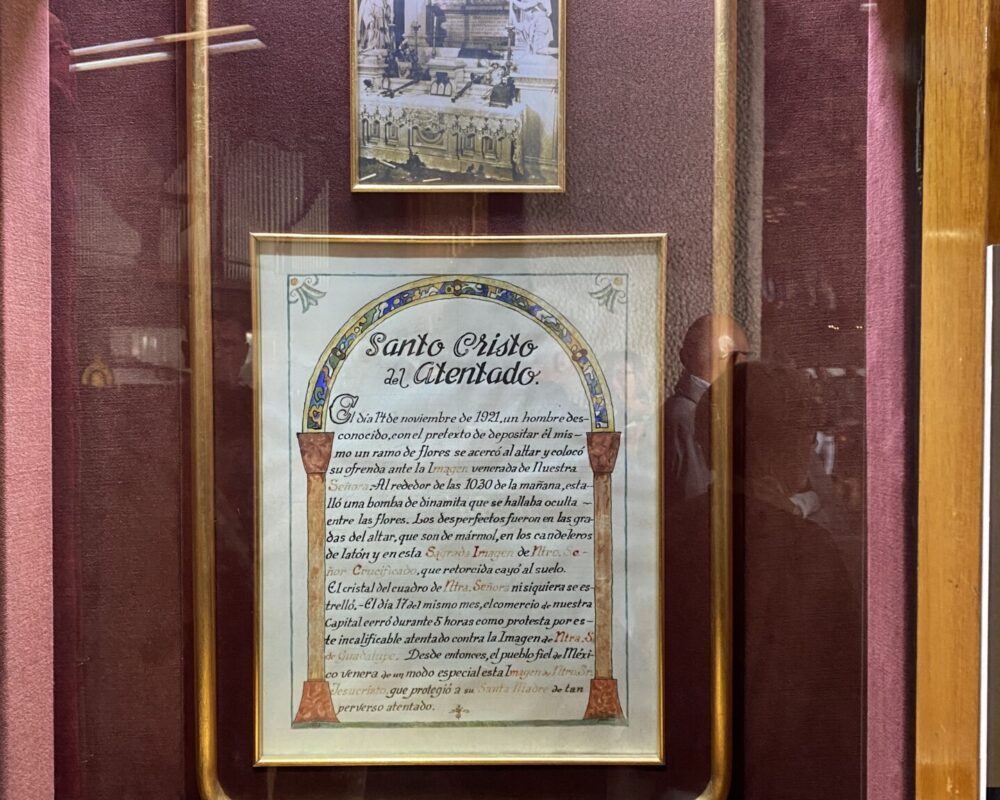 Santo Cristo
del Atentado.
El día 14 de noviembre de 1921, un hombre des-
conocido, con el pretexto de depositar él mis-
mo un ramo de flores se acercó al altar y colocó
su ofrenda ante la Imagen venerada de Nuestra
Señora.-Al rededor de las 1030 de la mañana, esta-
lló una bomba de dinamita que se hallaba oculta
entre las flores. Los desperfectos fueron en las gra-
das del altar, que son de mármol, en los candeleros
de latón y en esta Sagrada Imagen de Ntro. Se-
ñor Crucificado, que retorcida cayó al suelo.
El cristal del cuadro de Ntra. Señora ni siquiera se es-
trelló.-El día 17 del mismo mes, el comercio de nuestra
Capital cerró durante 5 horas como protesta por es-
te incalificable atentado contra la Imagen de Ntra. S.
de Guadalupe. Desde entonces, el pueblo fiel de Méxi-
co venera de un modo especial esta Imagen de Ntro. Sr.
Jesucristo, que protegió a su Santa Madre de tan
perverso atentado.